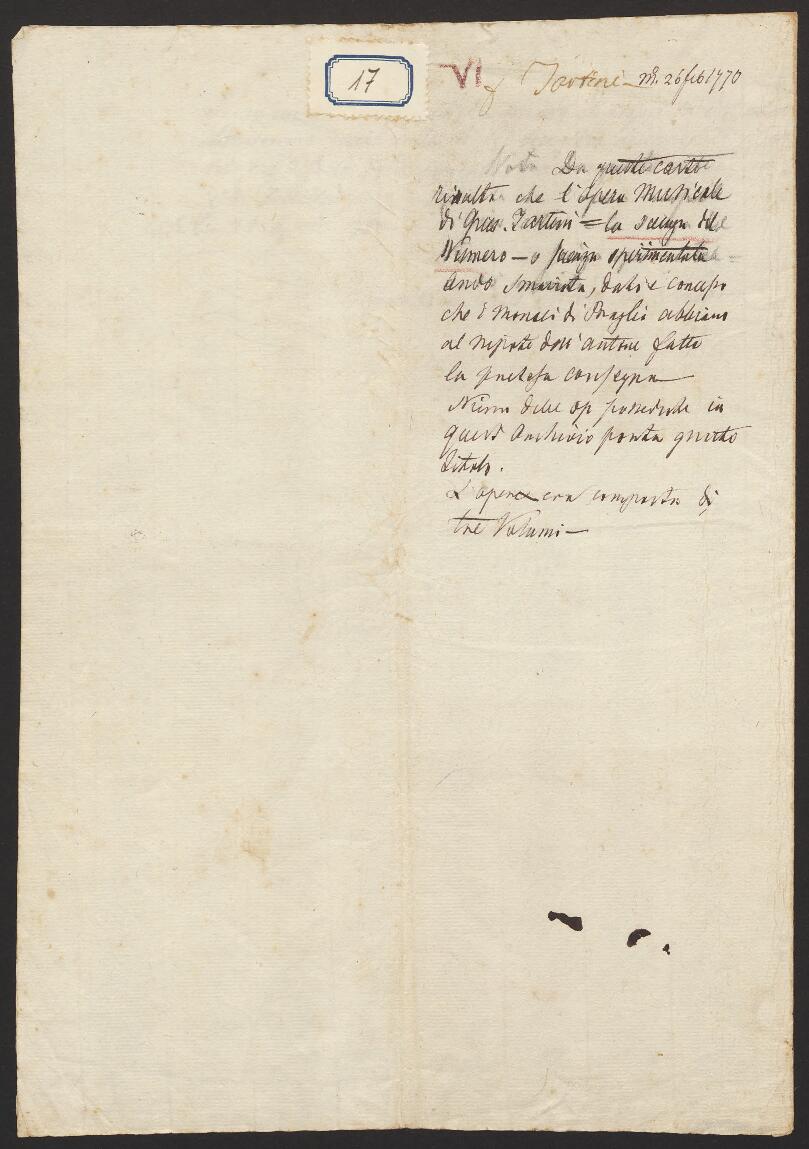 17
VI
Tartini m. 26 feb 1770
Nota Da queste carte
risulta che l'Opera Musicale
di Gius. Tartini = la scienza del
Numero — o scienza sperimentata =
andò smarrita, dato e concesso
che i Monaci di Praglia abbiano
al nipote dell'autore fatto
la pretesa consegna —
Niuna delle op possedute in
quest'Archivio porta questo
titolo.
L'opera era composta di
tre Volumi —